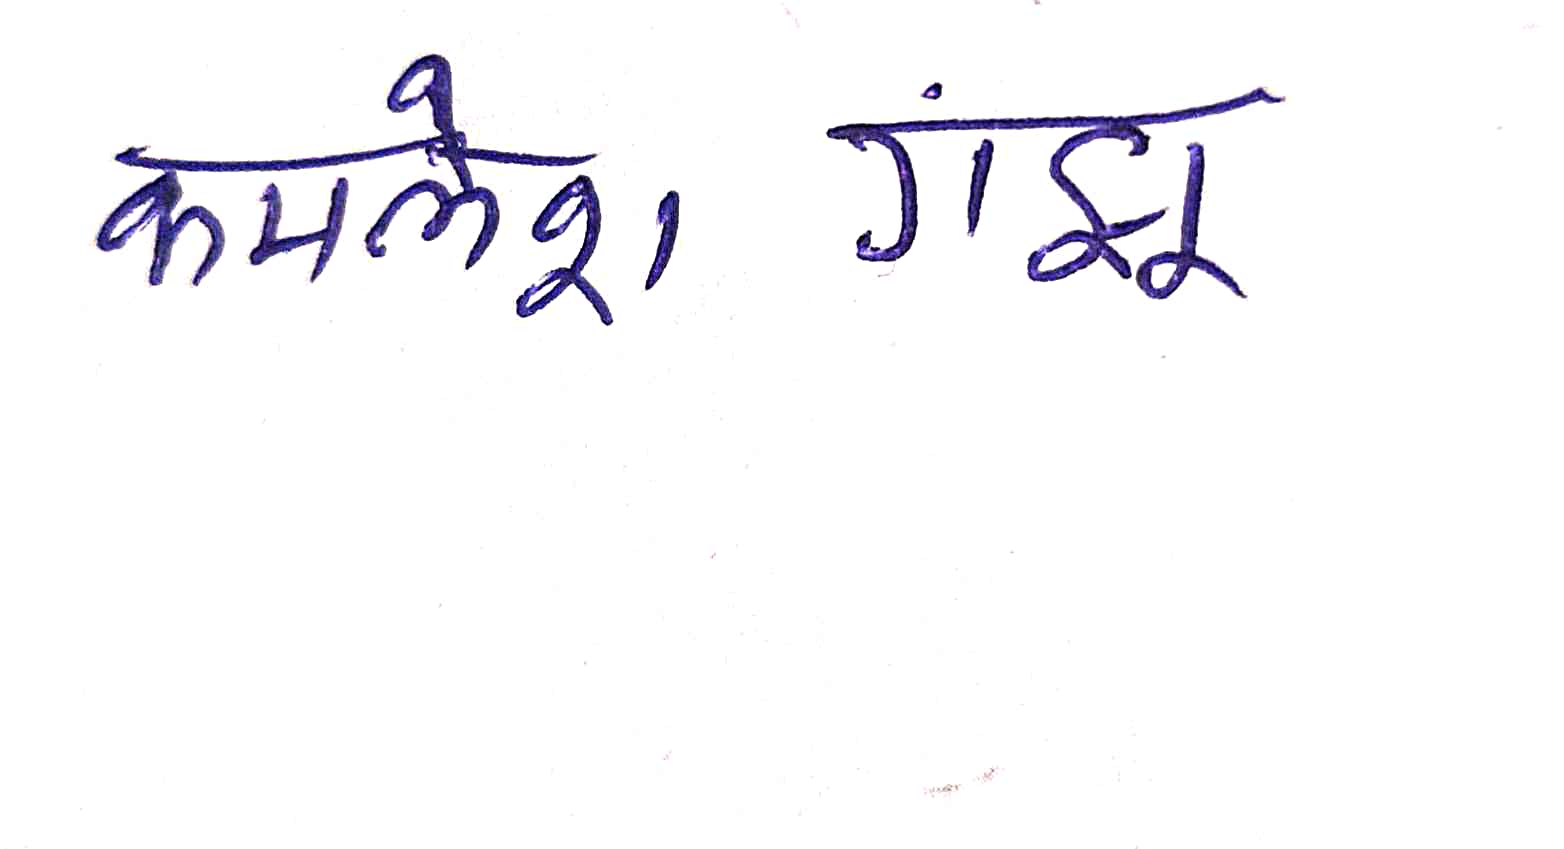 कमलेश गंझू